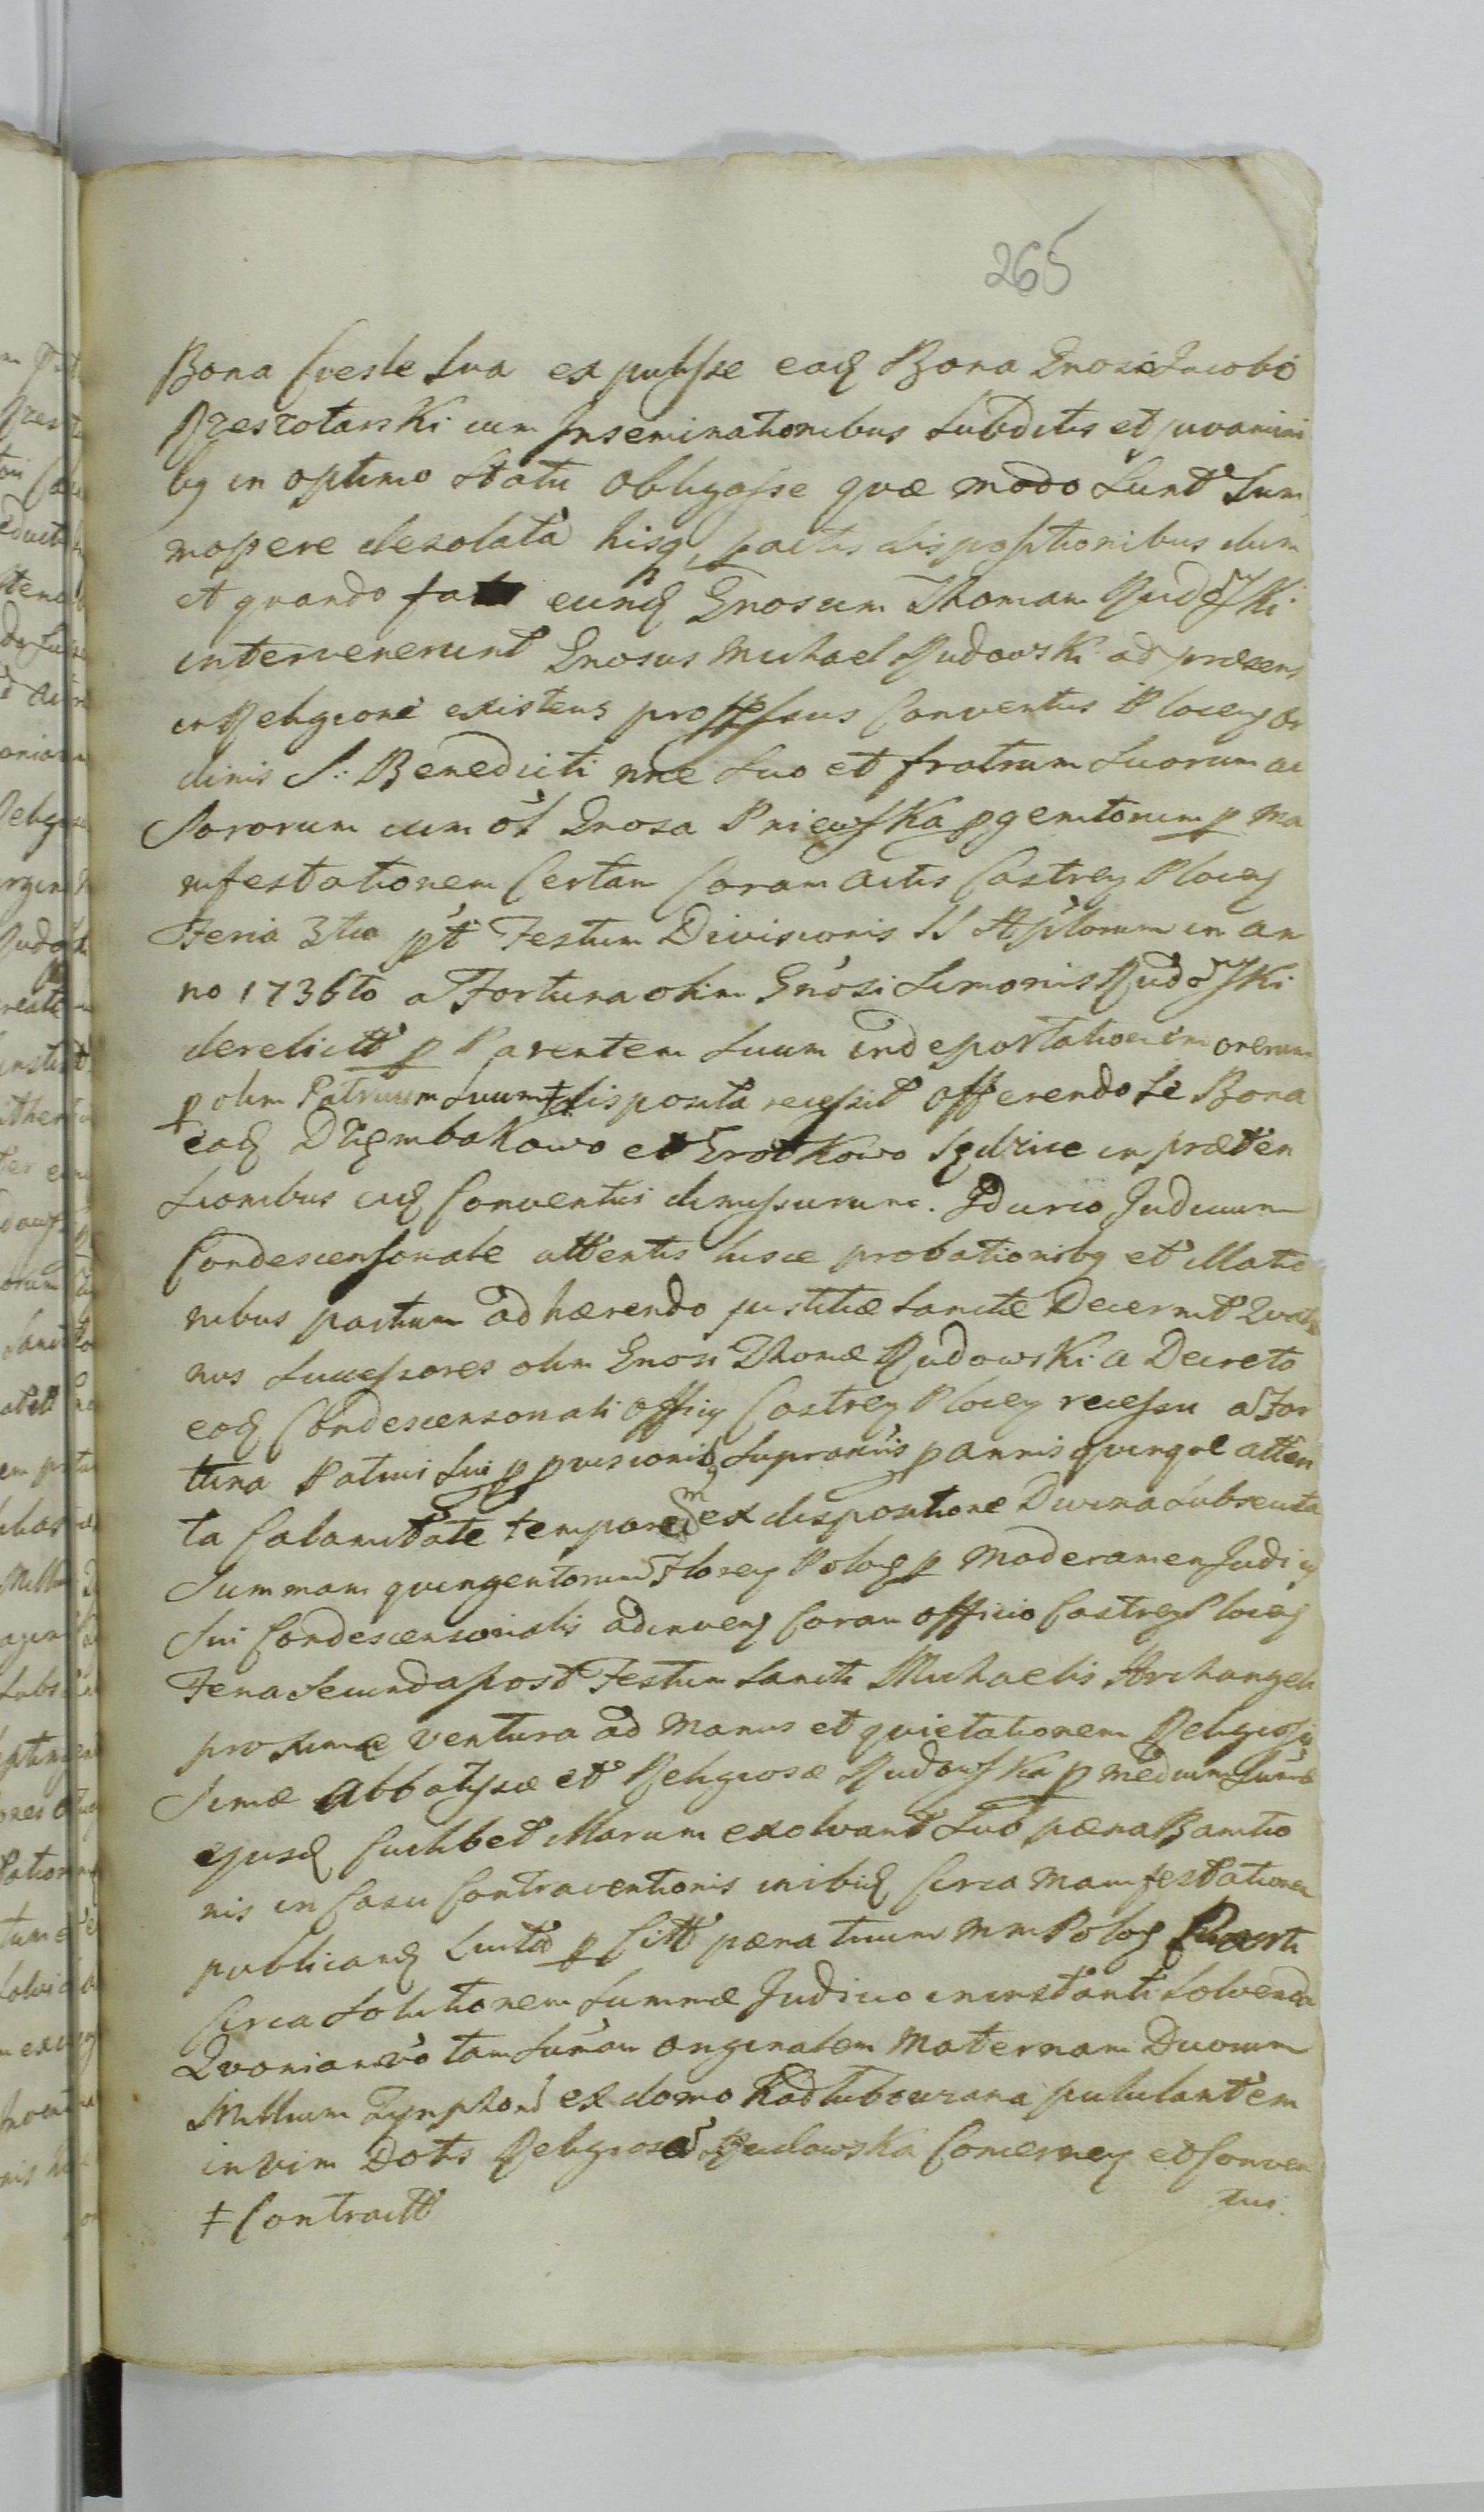 265
Bona Cresle Sua expulisse eadꝫ Bona Gnoso Jacobo
Brzezotarski cum Inseminationibus Subditis et juvamini
bꝫ in optimo Statu obligasse quæ modo Sunt Sum
mopere desolata hisqꝫ factis dispositionibus dum
et quando fata eundꝫ Gnosum Thomam Rudowski
intervenerunt Gnosus Michael Rudowski ad præsens
in Religione existens professus Conventus Plocen Or
dinis S: Benedicti nne Suo et fratrum Suorum ac
Sororum cum ol Gnosa Pniewska pgenitorum p ma
nifestationem Certam Coram actis Castren Plocen
Feria 3tia pt Festum Divisionis SS Aplorum in an
no 1736to a Fortuna olim Gnosi Simonis Rudowski
derelictt p Parentem Suum in deportationem onerum
p olim Patruum Suum ‡ disposita recessit offerendo Se Bona
eadꝫ Dzięmbakowo et Grotkowo Szdzice in præten
sionibus eidꝫ Conventui dimissurum. Id circo Judicium
Condescensoriale attentis hisce probationibꝫ et illatio
nibus partium adhærendo justitiæ Sanctæ Decernit Quate
nus Successores olim Gnosi Thomæ Rudowski a Decreto
eodꝫ Condescensoriali officii Castren Plocen recessu a For
tuna Patrui Sui p pvisionibꝫ Suprariis p annis quinque atten
ta Calamitate temporum ex dispositione Divina Subsecuta
Summam quingentorum Floren Polon p Moderamen Judicii
Sui Condescensorialis adinven Coram officio Castren Plocen
Feria Secunda post Festum Sancti Michaelis Archangeli
proxime ventura ad Manus et quietationem Religiosis
simæ Abbatissæ et Religiosæ Rudowska p medium Sumæ
ejusdꝫ Cuilibet illarum exolvant Sub pæna Bannitio
nis in Casu Contraventionis inibidꝫ Circa Manifestationem
publicandꝫ Luitio p Citt pæna trium Mm Polon parti
Circa Solutionem Summæ Judicio in instanti Solvenda
Quoniam vo tam Sumam originalem Maternam Duorum
Millium Tynphonꝫ ex domo Kadlubowrana pululantem
in vim Dotis Religiosæ Rudowska Concernen et Conven
tui.
‡ Contractt